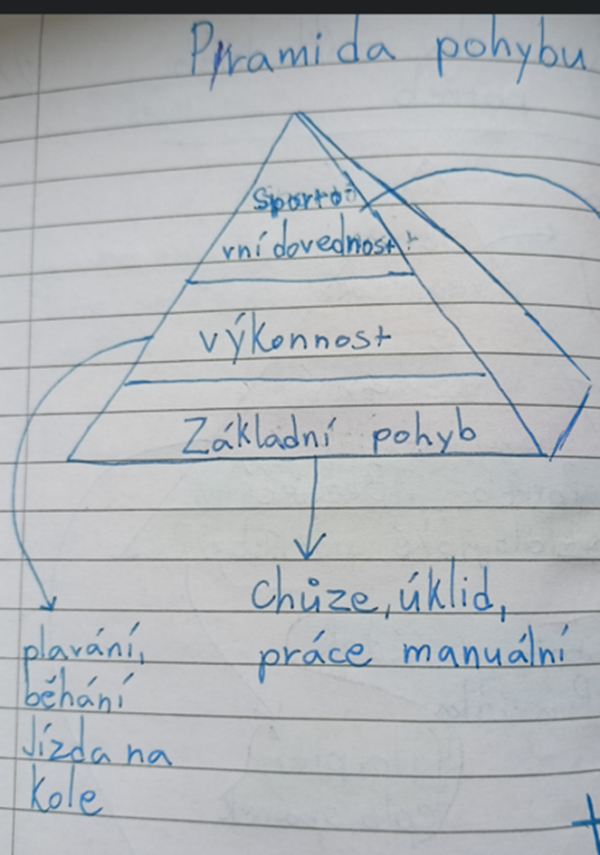 Pyramida pohybu
Sporto-
vní dovednost
výkonnost
Základní pohyb
Chůze, úklid,
práce manuální
plavání,
běhání
Jízda na
kole